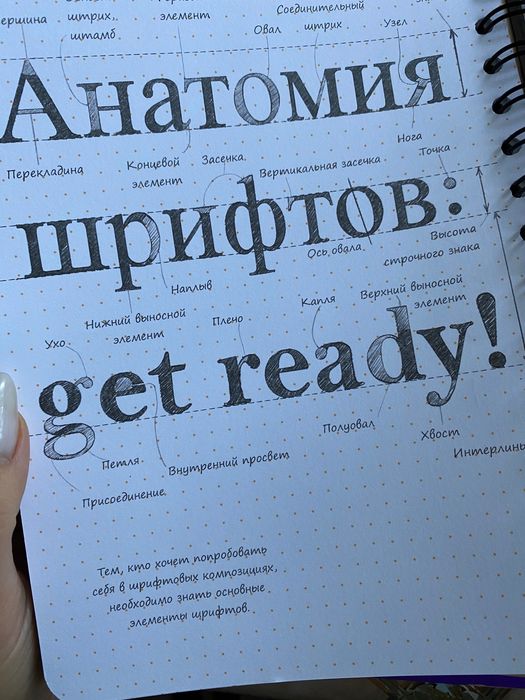 штрих,
элемент
Соединительный
штамб
Овал
штрих
Узел
Анатомия
Перекладина
Концевой
элемент
Засечка
Вертикальная засечка
Нога
Точка
шрифтов:
Наплыв
Ось овала
Высота
строчного знака
Нижний выносной
элемент
Плечо
Капля
Верхний выносной
элемент
Ухо
get ready!
Петля
Внутренний просвет
Полуовал
Хвост
Присоединение
Тем, кто хочет попробовать
себя в шрифтовых композициях,
необходимо знать основные
элементы шрифтов.